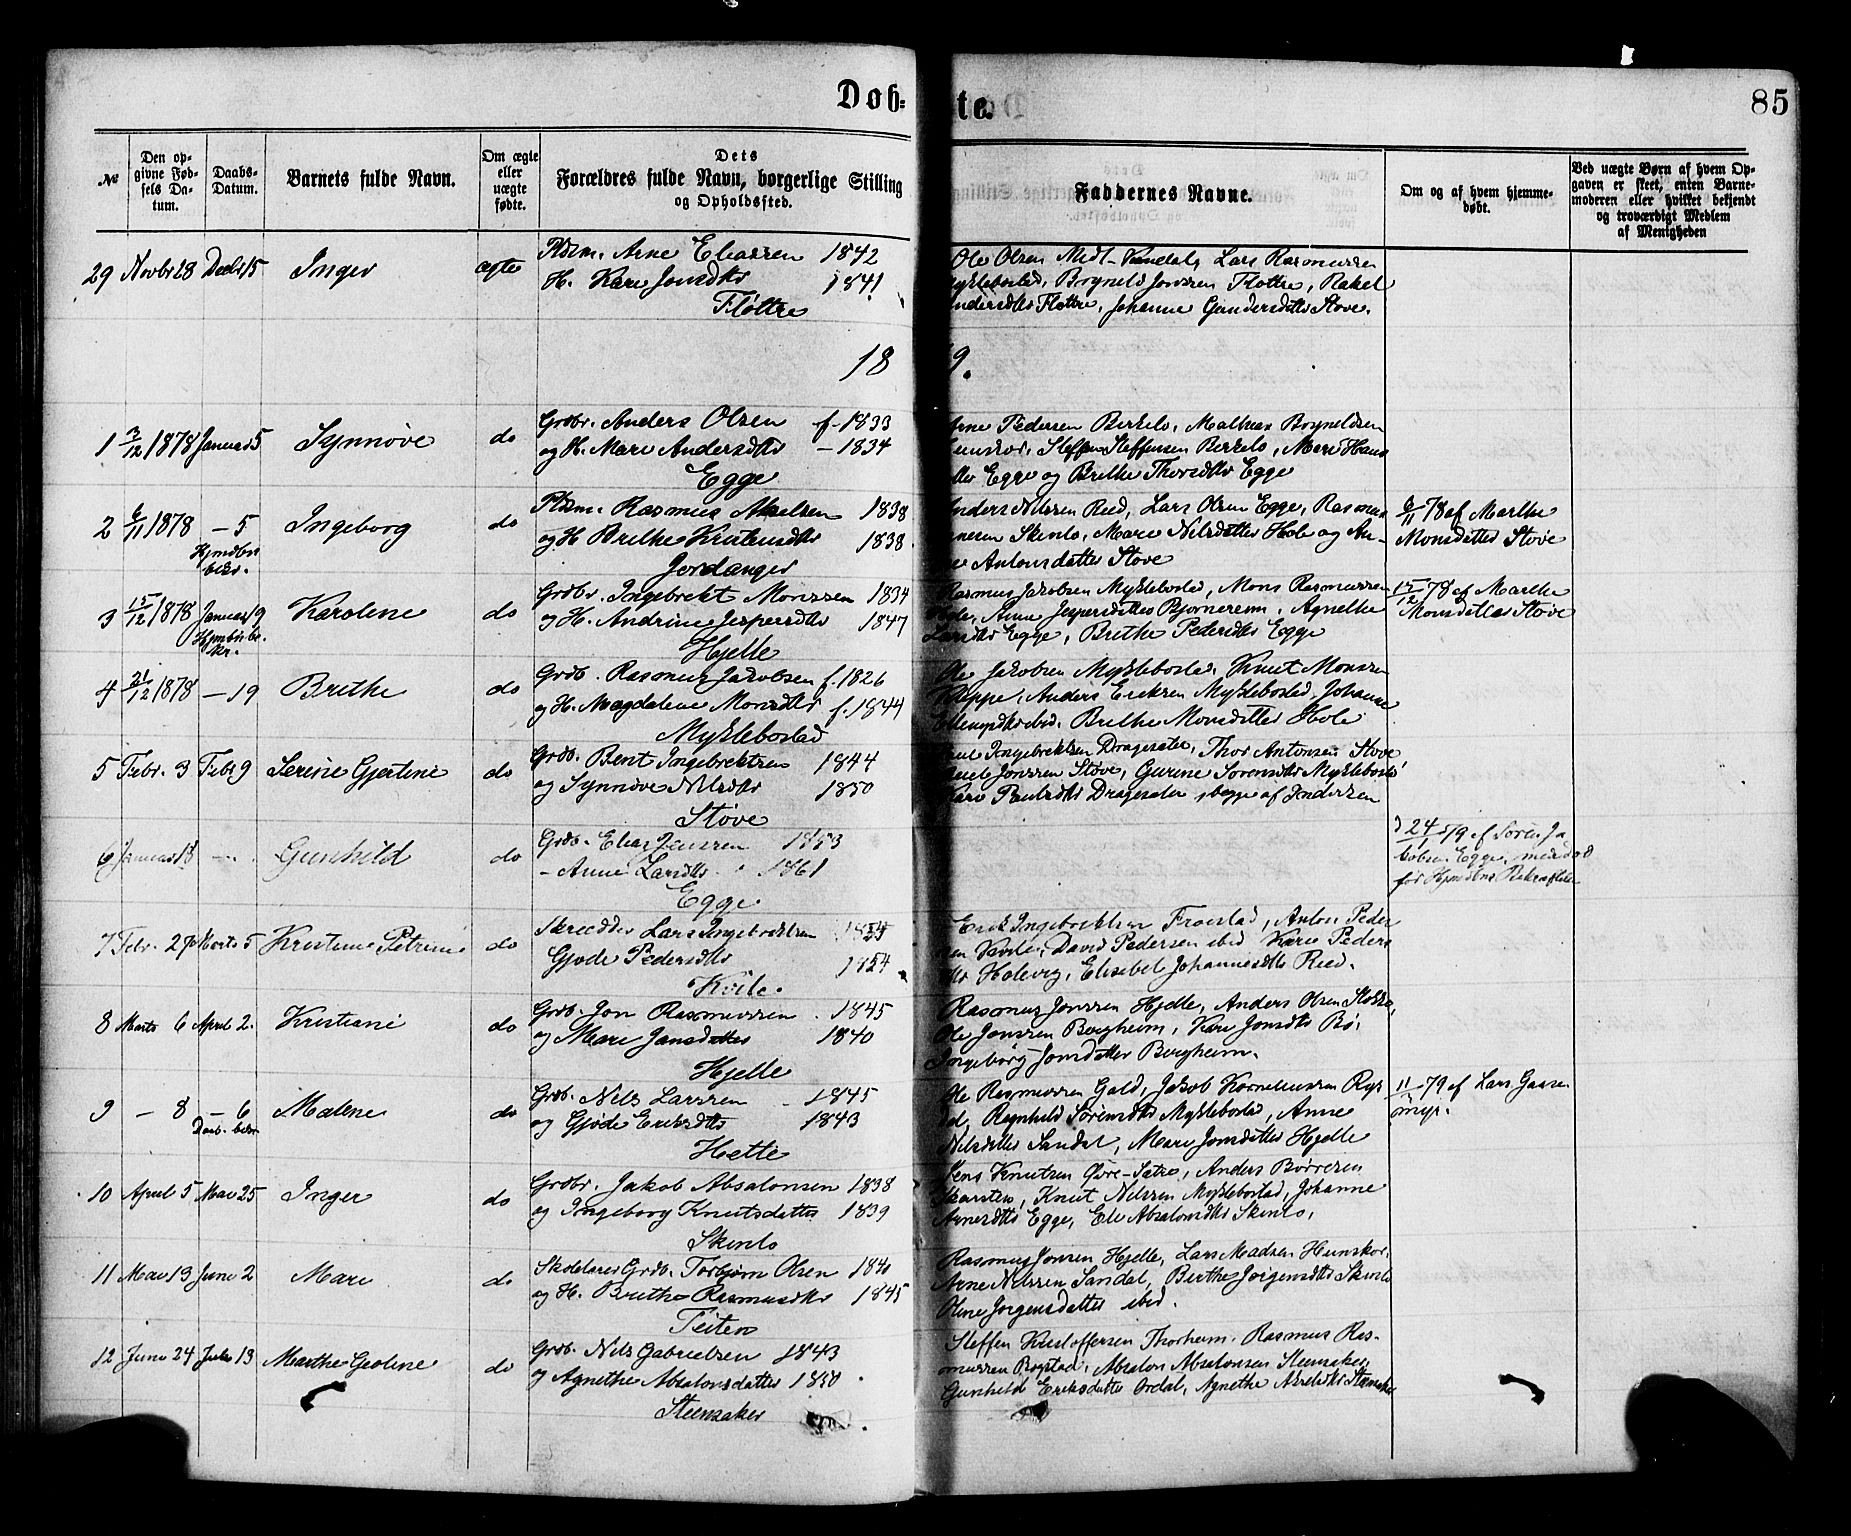 Døbte.
85
№
Den opgivne Fødsels Datum.
Daabs-Datum.
Barnets fulde Navn.
Om ægte eller uægte fødte.
Dets Forældres fulde Navn, borgerlige Stilling og Opholdssted.
Faddernes Navne.
Om og af hvem hjemmedøbt.
Ved uægte Børn af hvem Opgaven er skeet, enten Barnemoderen eller hvilket bekjendt og troværdigt Medlem af Menigheden
29 Novbr 28 Decbr 15 Inger ægte Pldsm. Arne Eliassen 1842
H. Kari Jonsdtr 1841
Fløttre
Ole Olsen Lars Rasmussen
Myklebostad, Bøgneld Jonssen Fløttre, Rakel
Andersdtr Fløttre, Johanne Gundersdatter Støve.
18 9.
1 3/12 1878 Januar 5 Synnøve do Grdbr. Anders Olsen f. 1833
og H. Mari Andersdtr – 1834
Egge
Arne Pedersen Birkelo, Mathias Bogneldsen
Steffen Steffensen Birkelo, Mari Hans
Egge og Brithe Thorsdtr Egge
2 6/11 1878 – 5 Ingeborg do Pldsm. Rasmus Akselsen 1838
og H. Brithe Kristensdtr 1838
Jordanger
Anders Nilssen Reed, Lars Olsen Egge, Rasmus
Skinlo, Mari Nilsdatter Hole og An-
ne Antonsdatter Støve
6/11 78 af Marthe
Monsdatter Støve
3 15/12 1878 Januar 19 Karoline do Grdbr. Ingebrekt Monssen 1834
og H. Andrine Jespersdtr 1847
Hjelle
Rasmus Jakobsen Myklebostad, Mons Rasmussen
Hole, Anne Jespersdatter Bjørnereim, Agnethe
Larsdtr Egge, Brithe Pedersdtr Egge
15/12 78 af Marthe
Monsdatter Støve
4 21/12 1878 – 19 Brithe do Grdb. Rasmus Jakobsen f. 1826
og H. Magdalene Monsdtr f. 1844
Myklebostad
Ole Jakobsen Myklebostad, Knut Monssen
Anders Eriksen Myklebostad, Johanne
ibid. Brithe Monsdatter Hole
5 Febr. 3 Febr 9 Serine Gjertine do Grdb. Bent Ingebrektsen 1844
og Synnøve Nilsdtr 1850
Støve
Ingebrektsen Dragesæter, Thor Antonsen Støve
Jonssen Støve, Gurine Sørensdtr Myklebost
Kari Paulsdtr Dragesæter
6 Januar 13 – Gunhild do Grdb. Elias Jenssen 1853
– Anne Larsdtr 1861
Egge
24/1 79 af Søren Ja
kobsen Egge, men død
før Hjmdbns Bekræftelse
7 Febr. 27 Marts 5 Kristine Petrine do Skrædder Lars Ingebrektsen
Gjøde Pedersdtr 1854
Kvile.
Erik Ingebrektsen Frøistad, Anton Peder
sen Kvile, David Pedersen ibid Kari Peders
dtr Holevig, Elisabet Johannesdtr Reed.
8 Marts 6 April 2. Kristiane do Grdb. Jon Rasmussen 1845
og Mari Jansdatter 1840
Hjelle
Rasmus Jonssen Hjelle, Anders Olsen
Ole Jonssen Bergheim, Kari Jonsdtr Bø,
Ingeborg Jonsdatter Bergheim.
9 – 8 – 6 Malene do Grdb. Nils Larssen 1845
og Gjøde Eriksdtr 1843
Hætte
Ole Rasmussen Gald, Jakob Korneliussen Ryg
Ragnhild Sørensdtr Myklebostad, Anne
Nilsdatter Sandal, Mari Jonsdatter Hjelle
79 af Lars Gaase
myr.
10 April 5 Mai 25 Inger do Grdbr. Jakob Absalonsen 1838
og Ingeborg Knutsdatter 1839
Skinlo
Jens Knutsen Øvre-Sætre, Anders Børresen
Knut Nilssen Myklebostad, Johanne
Arnesdtr Egge, Eli Absalonsdtr Skinlo,
11 Mai 13 Juni 2 Mari do Skolelærer Grdb. Torbjørn Olsen
og H. Brithe Rasmusdtr 1845
Teiten
Rasmus Jonsen Hjelle, Lars Madsen Hunskor,
Arne Nilssen Sandal, Berthe Jørgensdtr Skinlo
Oline Jørgensdatter ibid.
12 Juni 24 Juli 13 Marthe Geoline do Grdb. Nils Gabrielsen 1843
og Agnethe Absalonsdatter 1850
Steensaker
Steffen Kristoffersen Thorheim. Rasmus Ras-
mussen Bogstad, Absalon Absalonsen Steensaker,
Gunhild Eriksdatter Ordal, Agnethe